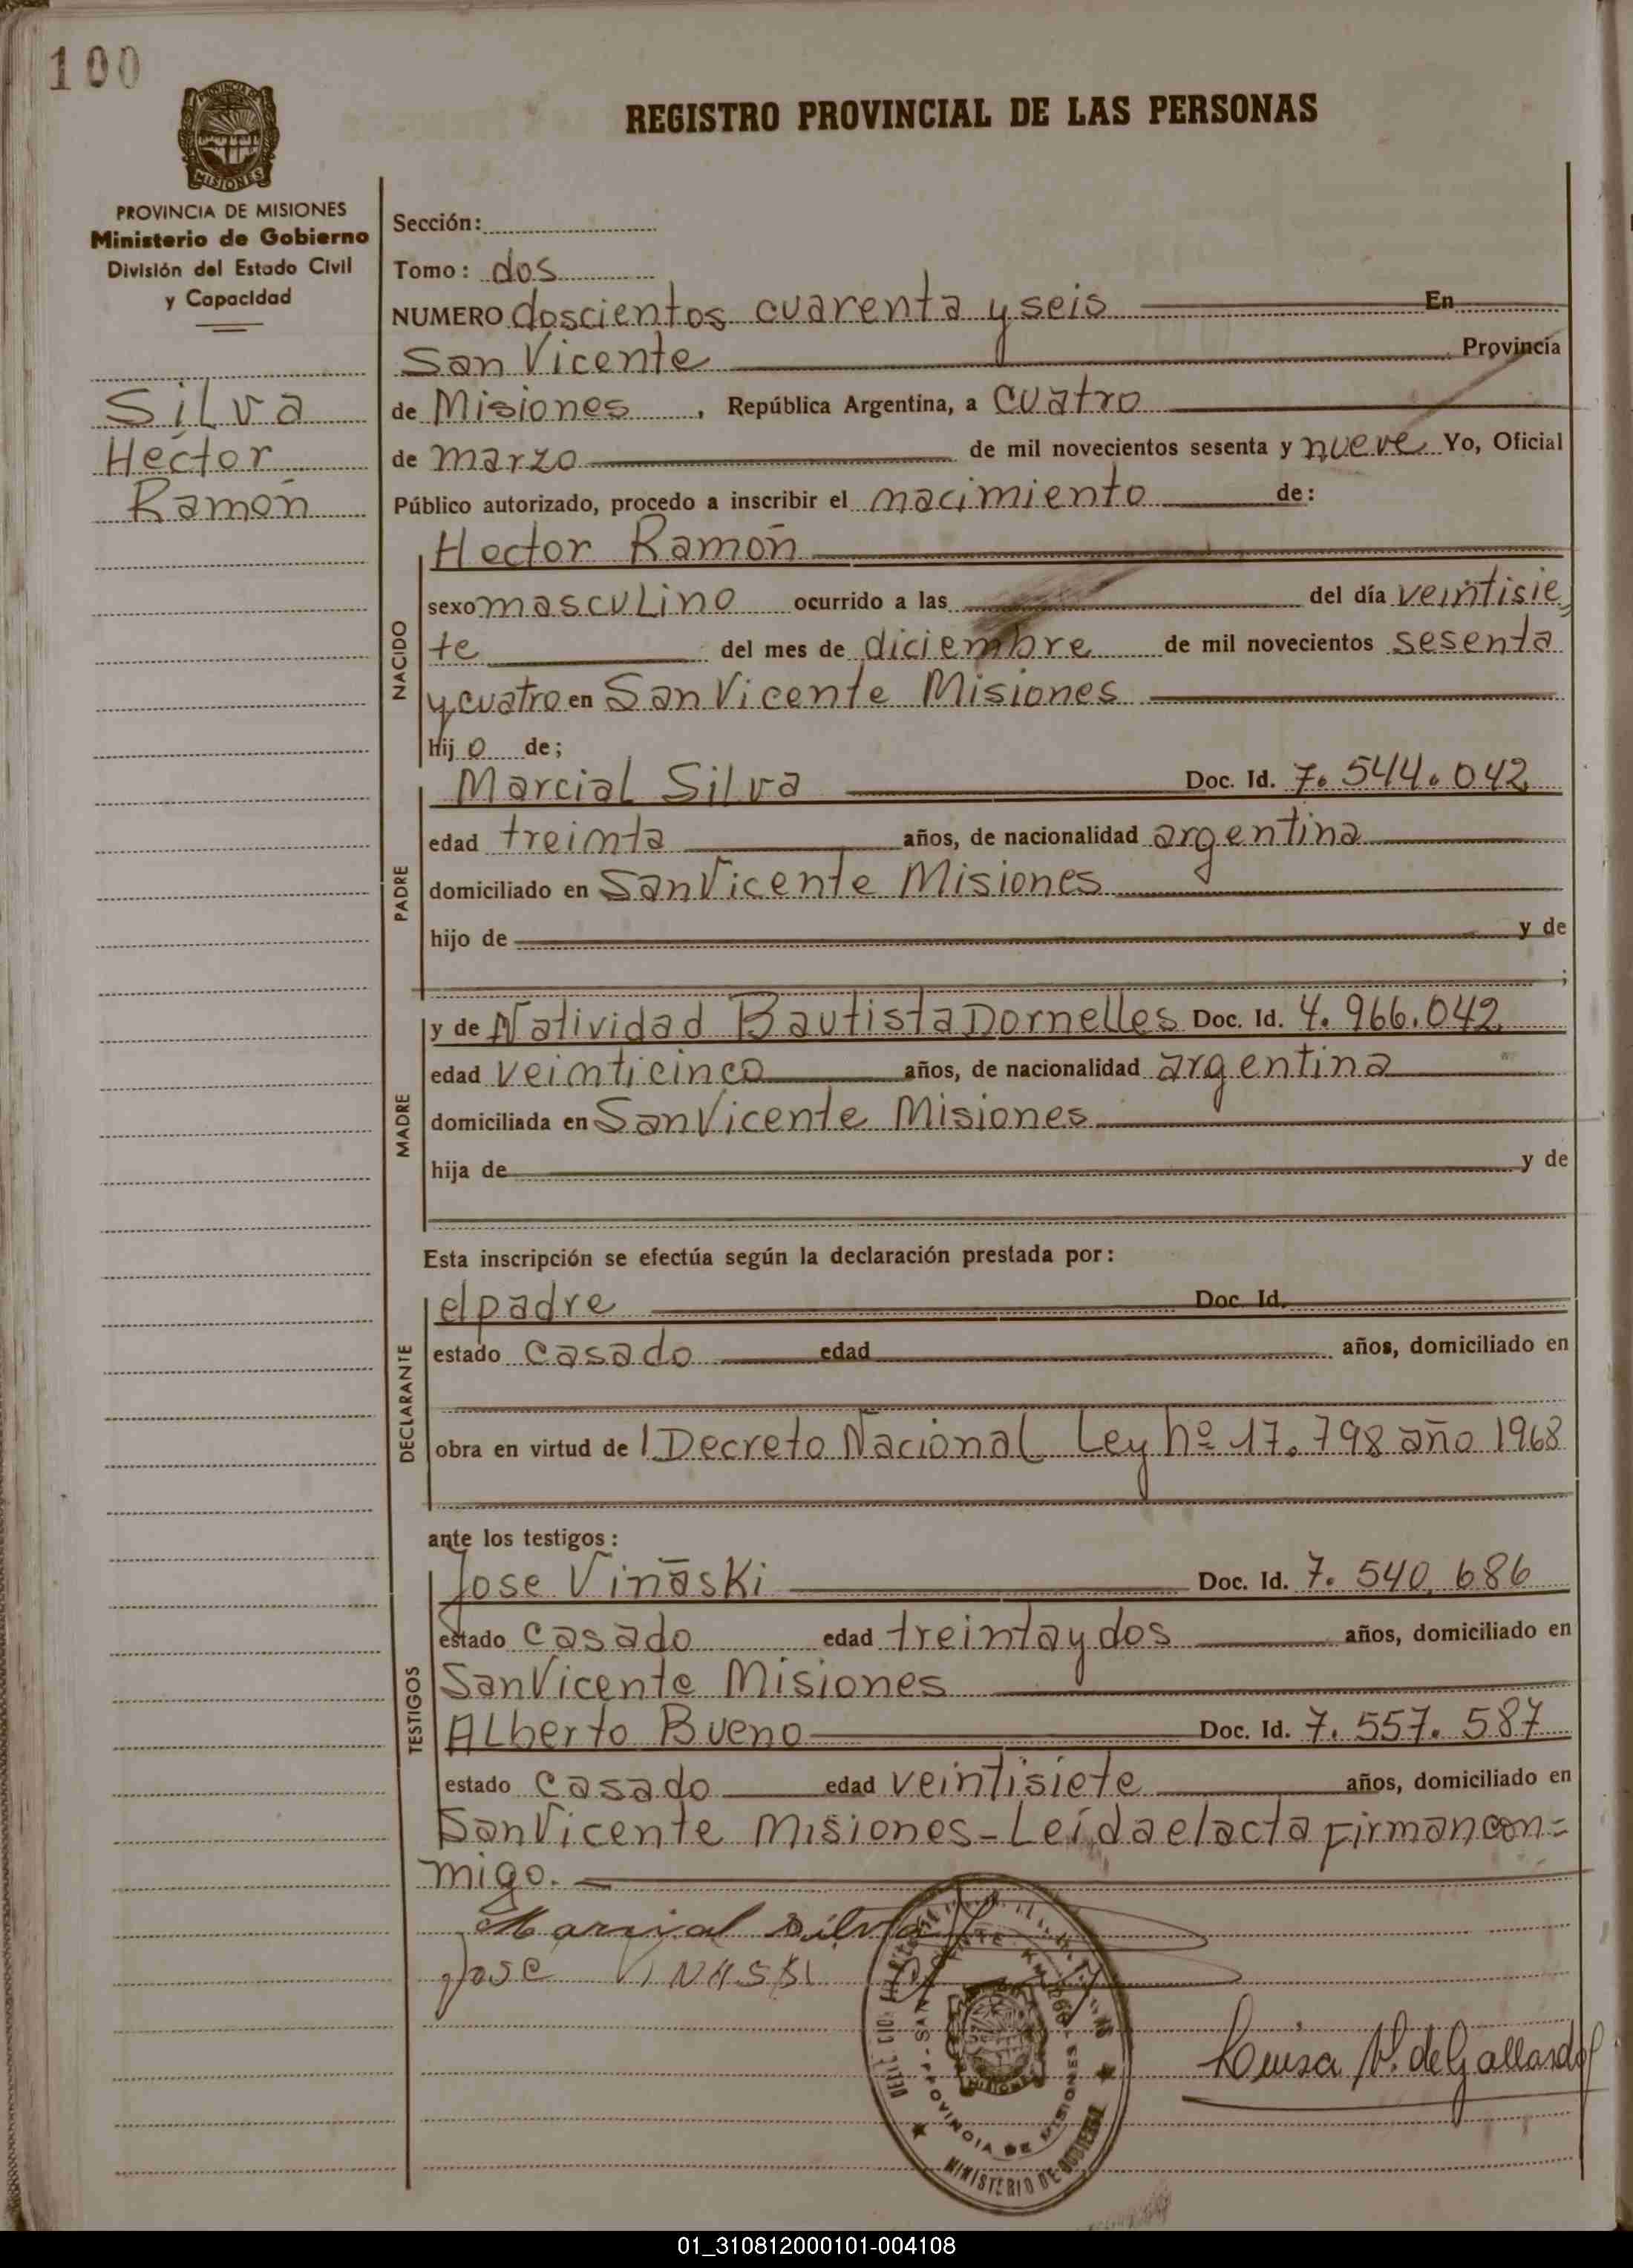 100
PROVINCIA DE
MISIONES
REGISTRO PROVINCIAL DE LAS PERSONAS
PROVINCIA DE MISIONES
Ministerio de Gobierno
División del Estado Civil
y Capacidad
Silva
Héctor
Ramón
Sección:
Tomo: dos
NUMERO doscientos cuarenta y seis En
San Vicente Provincia
de Misiones, República Argentina, a cuatro
de marzo de mil novecientos sesenta y nueve Yo, Oficial
Público autorizado, procedo a inscribir el nacimiento de:
NACIDO
Hector Ramón
sexo masculino ocurrido a las del día veintisie
te del mes de diciembre de mil novecientos sesenta
y cuatro en San Vicente Misiones
Hijo de;
PADRE
Marcial Silva Doc. Id. 7.544.042
edad treinta años, de nacionalidad argentina
domiciliado en San Vicente Misiones
hijo de y de
;
MADRE
y de Natividad Bautista Dornelles Doc. Id. 4.966.042
edad veinticinco años, de nacionalidad argentina
domiciliada en San Vicente Misiones
hija de y de
Esta inscripción se efectúa según la declaración prestada por:
DECLARANTE
el padre Doc. Id.
estado casado edad años, domiciliado en
obra en virtud del Decreto Nacional Ley nº 17.798 año 1968
ante los testigos:
TESTIGOS
Jose Vinaski Doc. Id. 7.540.686
estado casado edad treinta y dos años, domiciliado en
San Vicente Misiones
Alberto Bueno Doc. Id. 7.557.587
estado casado edad veintisiete años, domiciliado en
San Vicente Misiones - Leída el acta firman con=
migo.
Marcial Silva
Jose VINASKI
SAN VICENTE
PROVINCIA DE MISIONES
MINISTERIO DE GOBIERNO
Luisa V. de Gallardo
01_310812000101-004108